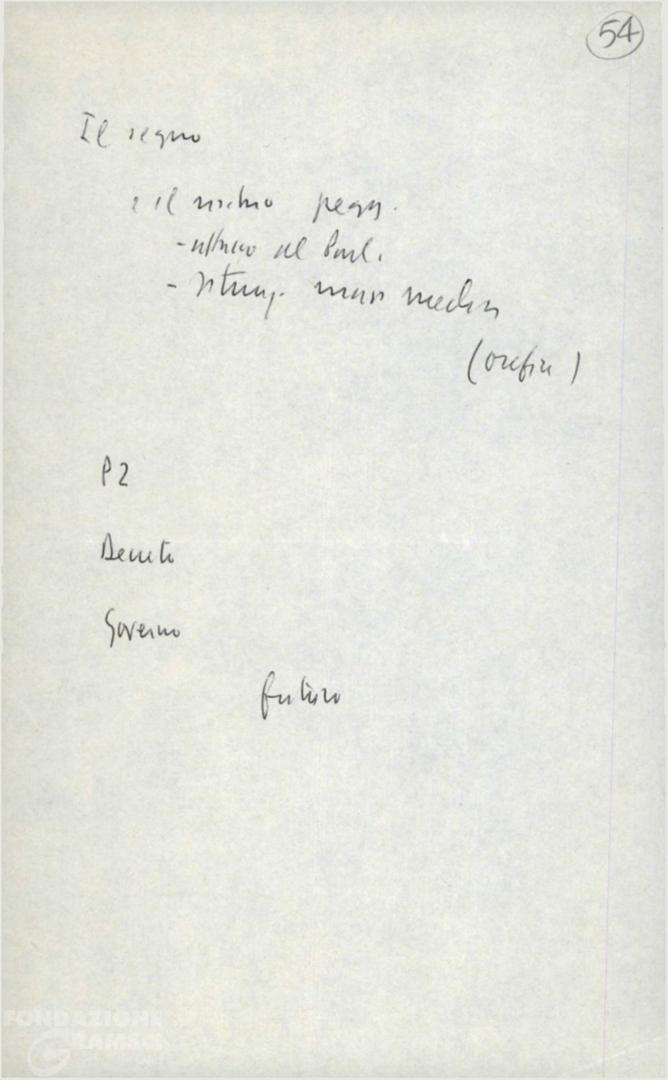 54
Il segno
e il rischio pegg.
- attacco al Parl.
- mass media
P2
Decreto
Governo
futuro
FONDAZIONE
GRAMSCI